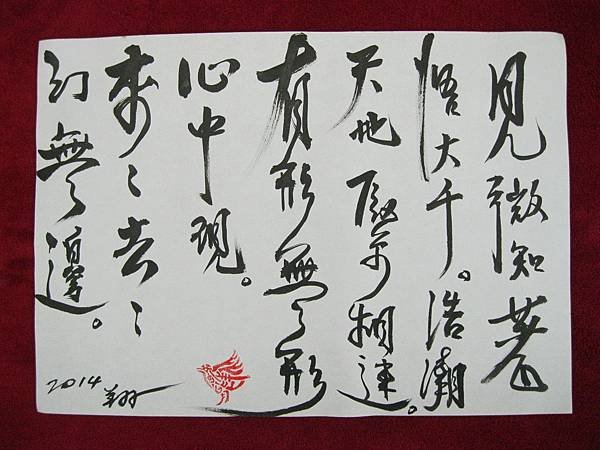 見微知著
悟大千。浩瀚
天地緊相連。
有形無形
心中現。
來〻去〻
幻無邊。
2014 翔